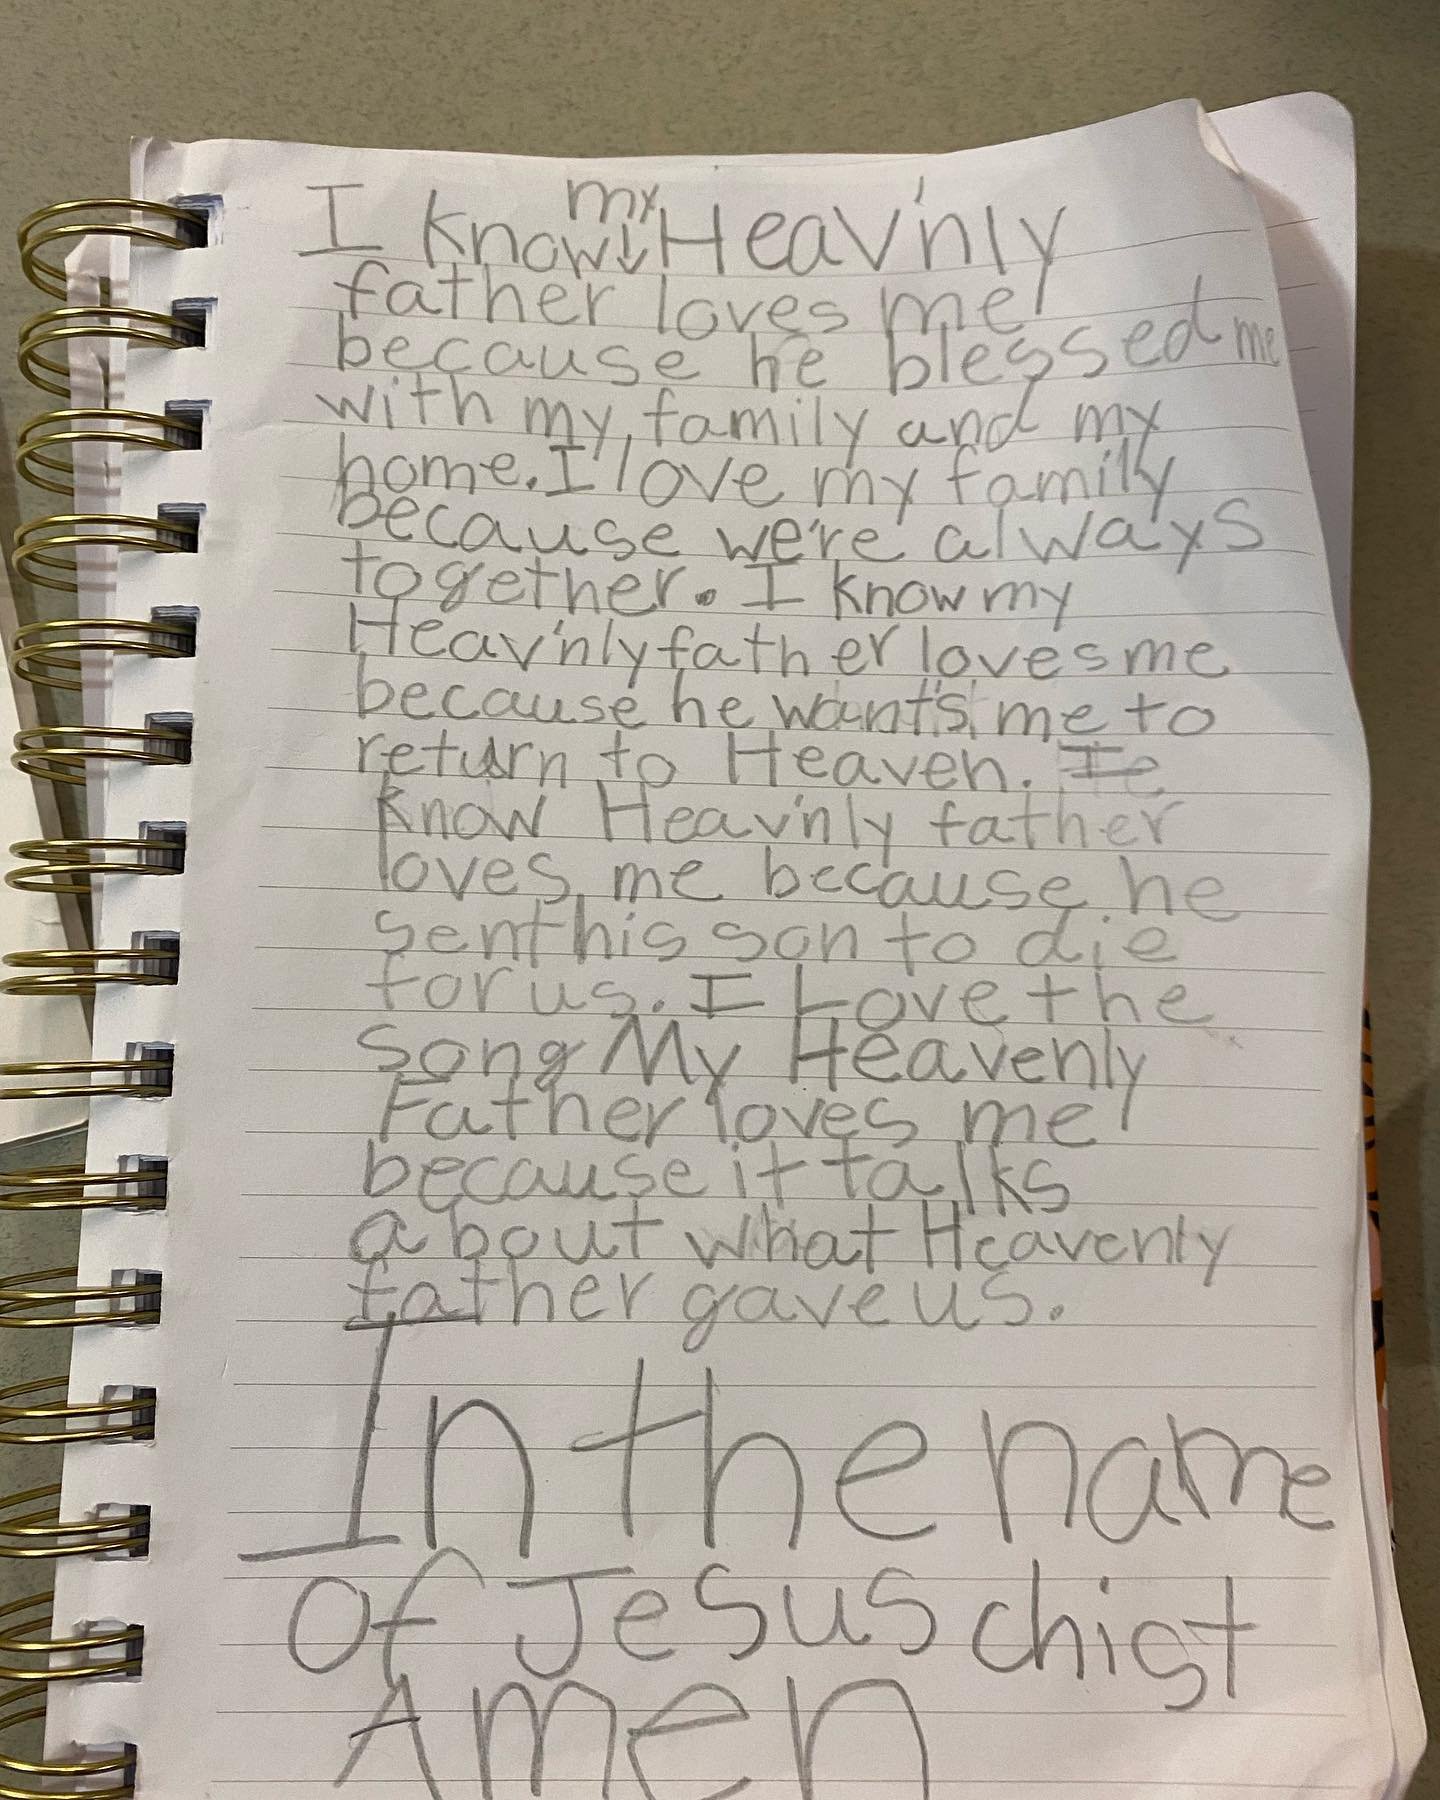 I know my Heav'nly
father loves me
because he blessed me
with my family and my
home. I love my family
because we're always
together. I know my
Heav'nly father loves me
because he want's me to
return to Heaven. I
know Heav'nly father
loves me because he
sent his son to die
for us. I Love the
song My Heavenly
Father loves me
because it talks
about what Heavenly
father gave us.
In the name
of Jesus chist
Amen